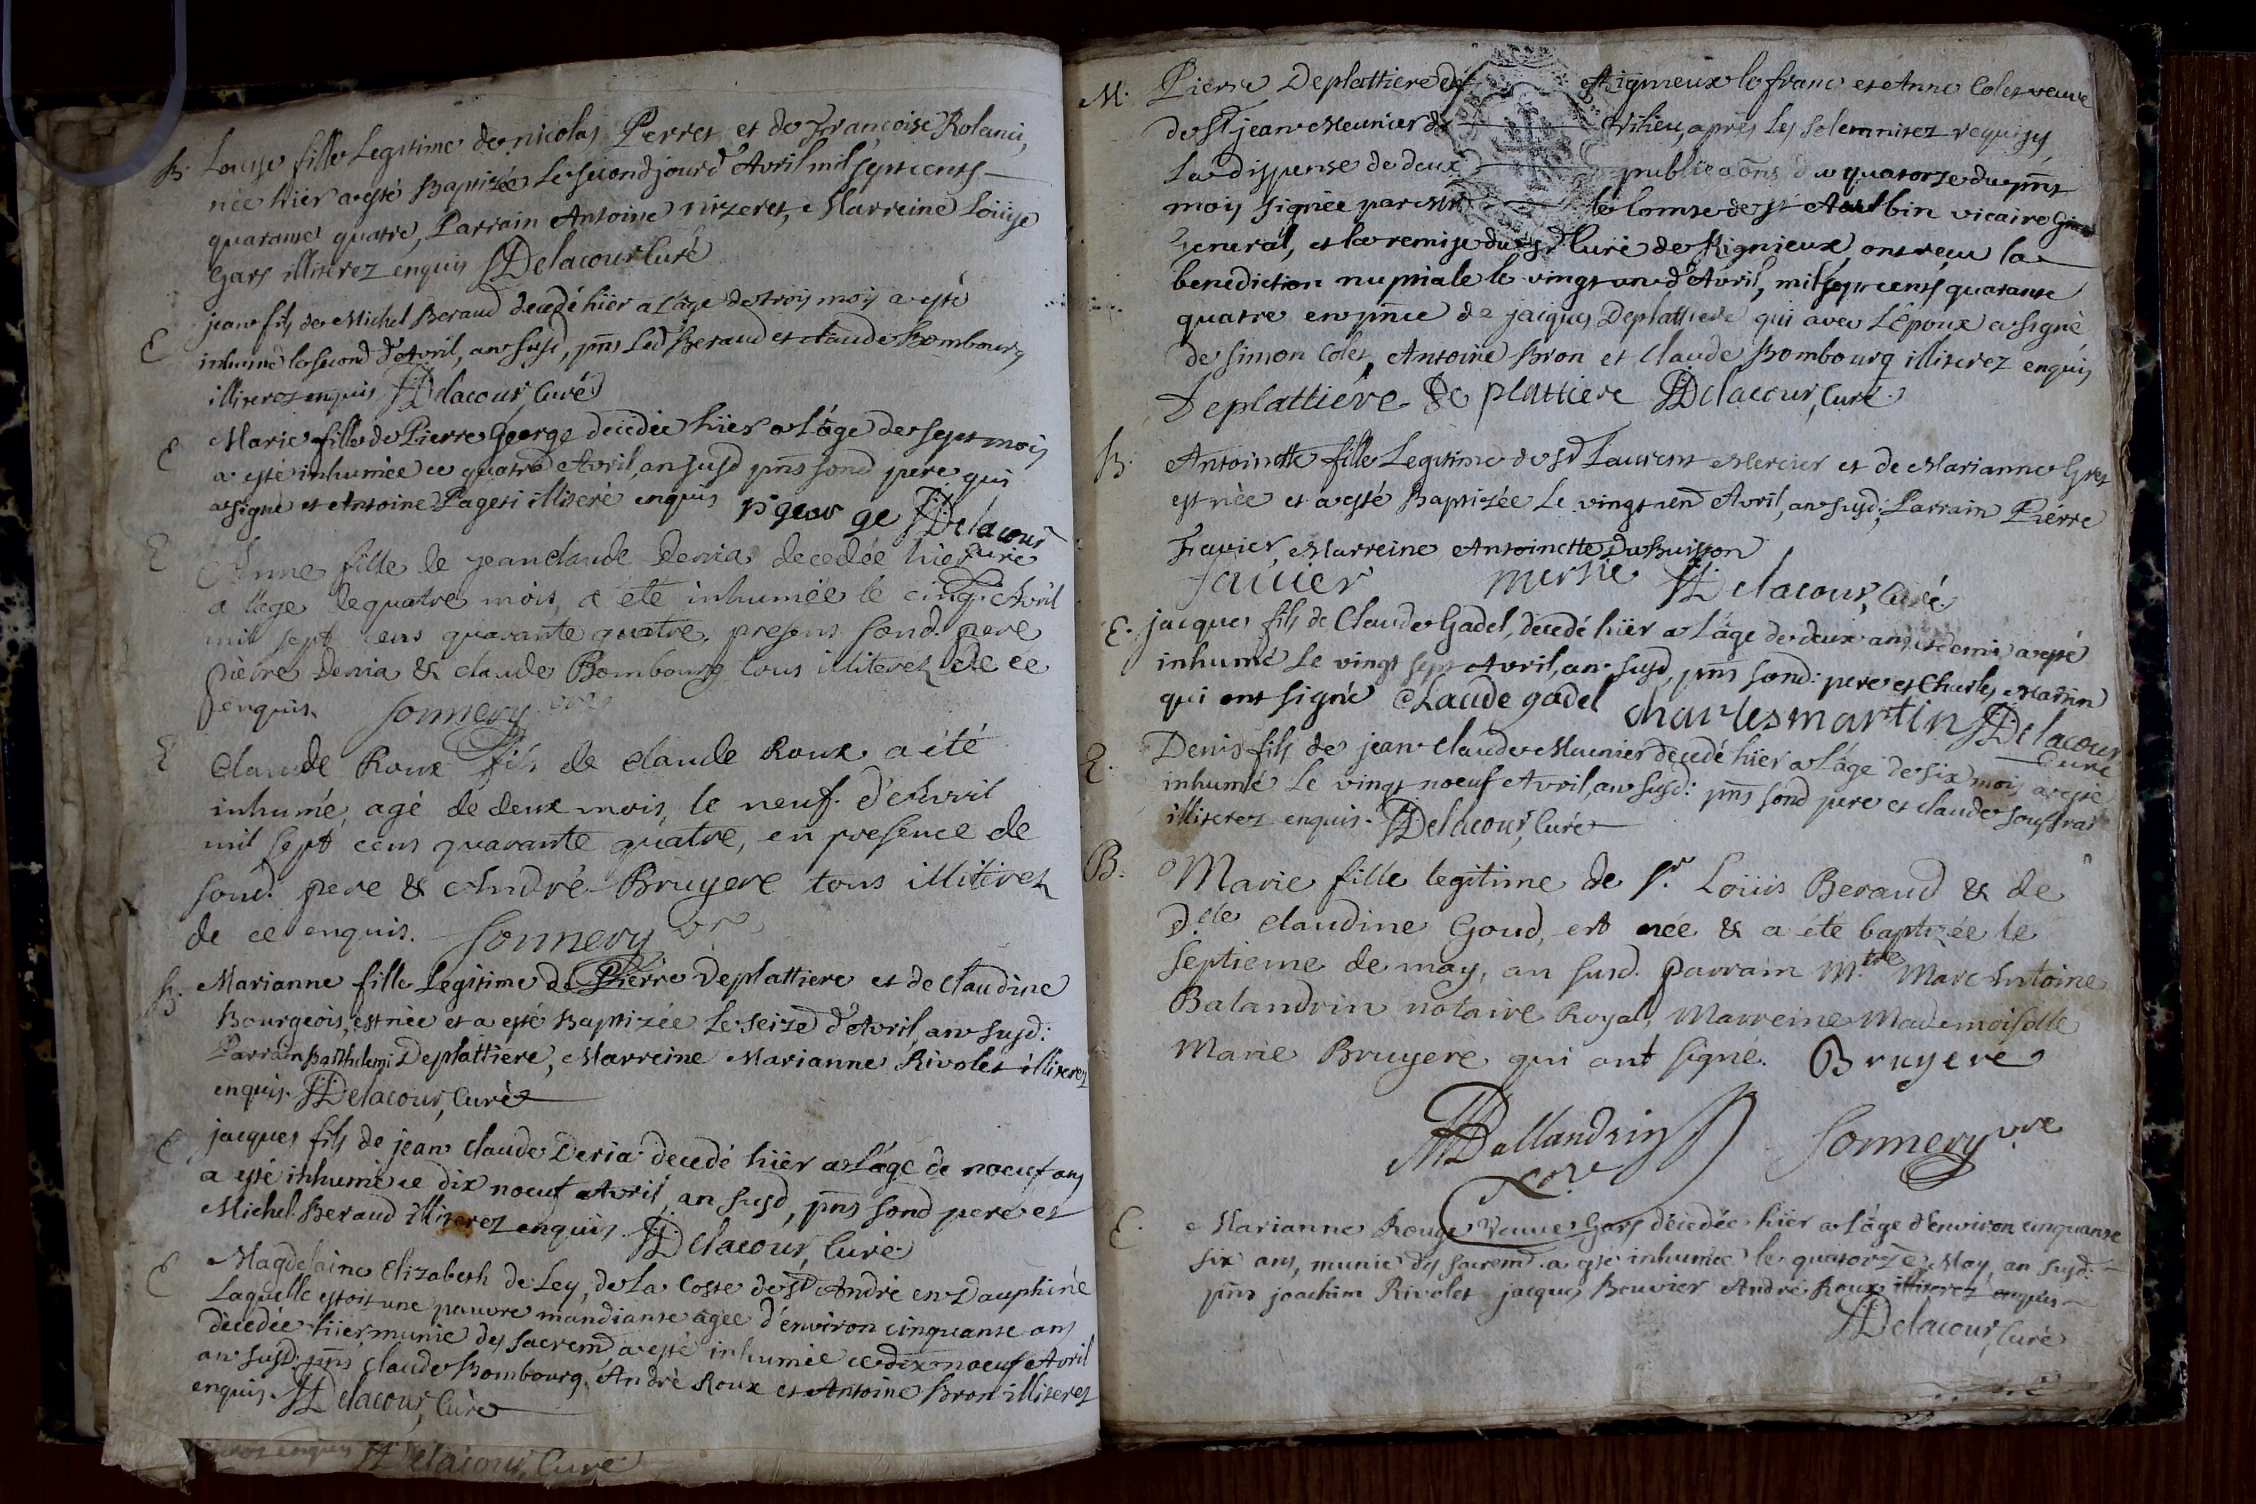 B. Louyse fille Legitime de nicolas Perret et de Francoise Roland,
née hier a esté Baptizée Le second jour d'Avril mil sept cents
quarante quatre, Parrain Antoine nizeret, Marreine Loüyse
Gars illiterez enquis Delacour Curé
E jean fils de Michel Beraud decedé hiër a l'âge de trois mois a esté
inhumé le second d'Avril, an susd, pnts Led Beraud et claude Bombourg
illiterez enquis Delacour, Curé
E Marie fille de Pierre George decedée hiër a l'âge de sept mois
a esté inhumée ce quatre Avril, an susd pnts sond pere qui
a signé et Antoine Pageti illiteré enquis p george Delacour
Curé
E Anne fille de jean claude Deria decedée hier
a l'age de quatre mois, a été inhumée le cinq Avril
mil sept cens quarante quatre, presens sond. pere
pierre Deria & claude Bombourg tous illiterez de ce
enquis. Sonnery vre
E Claude Roux fils de claude Roux a été
inhumé, agé de deux mois, le neuf d'Avril
mil sept cens quarante quatre, en presence de
sond. pere & André Bruyere tous illiterez
de ce enquis. Sonnery vre
B. Marianne fille Legitime de Pierre Deplattiere et de Claudine
Bourgeois, est née et a esté Baptizée Le seize d'Avril, an susd:
Parrain Barthelemi Deplattiere, Marreine Marianne Rivolet illiterez
enquis. Delacour, Curé
E jacques fils de jean Claude Deria decedé hiër a l'âge de noeuf ans
a esté inhumé ce dix noeuf Avril, an susd, pnts sond pere et
Michel Beraud illiterez enquis Delacour, Curé
E Magdelaine Elizabeth de Ley, de La Coste de St André en Dauphiné
Laquelle estoit une pauvre mandiante agée d'environ cinquante ans
decedée hiër munie des sacremd a esté inhumée ce dix noeuf Avril
an susd. pnts claude Bombourg, André Roux et Antoine Bron illiterez
enquis. Delacour, Curé
enquis Delacour, Curé
M. Pierre Deplattiere de Rigneux le franc et Anne Colet veuve
de St jean Meunier de Vilieu, apres Les solemnitez requises,
La dispense de deux publicaõns du quatorze du pnt
mois signée par Mr le Comte de St Aulbin vicaire
General, et la remise du Sr Curé de Rignieux, ont recu la
benediction nuptiale le vingt un d'Avril, mil sept cents quarante
quatre en pnce de jacques Deplattiere qui avec L'Epoux a signé
de simon Colet, Antoine Bron et Claude Bombourg illiterez enquis
Deplattiére De plattiere Delacour, Curé.
B. Antoinette fille Legitime de Sr Laurent Mercier et de Marianne Gret
est née et a esté Baptizée Le vingt un d Avril, an susd; Parrain Piérre
Favier, Marreine Antoinette Du Buisson
faúier mersie Delacour, Curé.
E. jacques fils de Claude Gadel, decedé hiër a l'âge de deux ans et demi a esté
inhumé Le vingt sept Avril, an susd, pnts sond: pere et Charles Martin
qui ont signé Claude gadel charles martin Delacour
Curé
E. Denis fils de jean Claude Munier decedé hiër a l'âge de six mois, a esté
inhumé Le vingt noeuf Avril, an susd: pnts sond pere et claude
illiterez enquis. Delacour, Curé
B. Marie fille legitime de Sr. Loüis Beraud & de
D.elle claudine Goud, est née & a été baptizée le
septieme de may, an susd. parrain M.tre Marc Antoine
Balandrin notaire Royal, Marreine Mademoiselle
Marie Bruyere qui ont signé. Bruyere
Ballandrin Sonnery vre
E. Marianne Rouge Veuve Gars décedée hiër a l'âge d'environ cinquante
six ans, munie des sacremd. a esté inhumée le quatorze May, an susd:
pnts joachim Rivolet jacques Bouvier André Roux illiterez enquis
Delacour, Curé